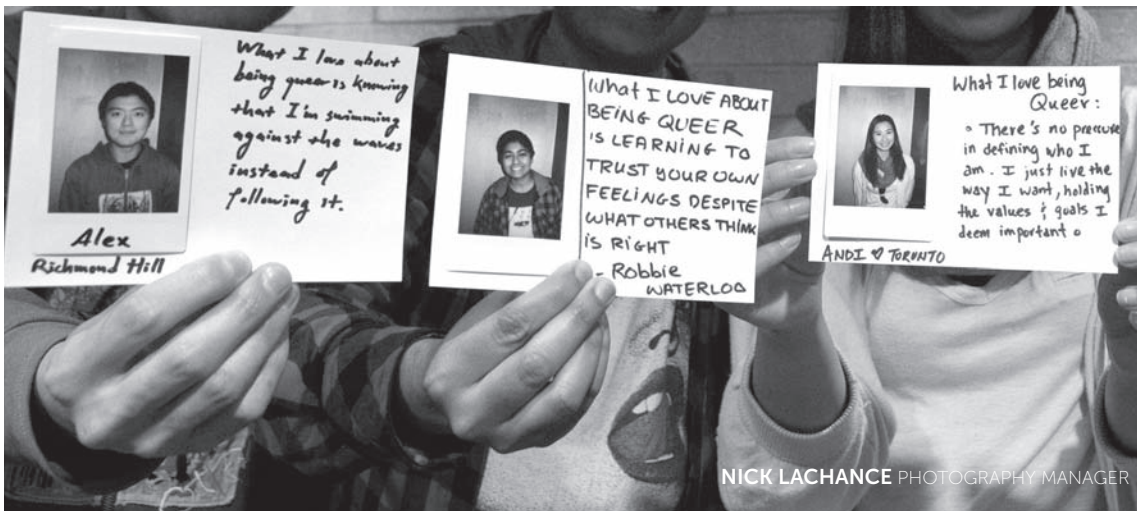 What I love about
being queer is knowing
that I'm swimming
against the waves
instead of
following it.
Alex
Richmond Hill
What I LOVE ABOUT
BEING QUEER
IS LEARNING TO
TRUST YOUR OWN
FEELINGS DESPITE
WHAT OTHERS THINK
IS RIGHT
- Robbie
WATERLOO
What I love being
Queer:
• There's no pressure
in defining who I
am. I just live the
way I want, holding
the values & goals I
deem important.
ANDI ♡ TORONTO
NICK LACHANCE PHOTOGRAPHY MANAGER